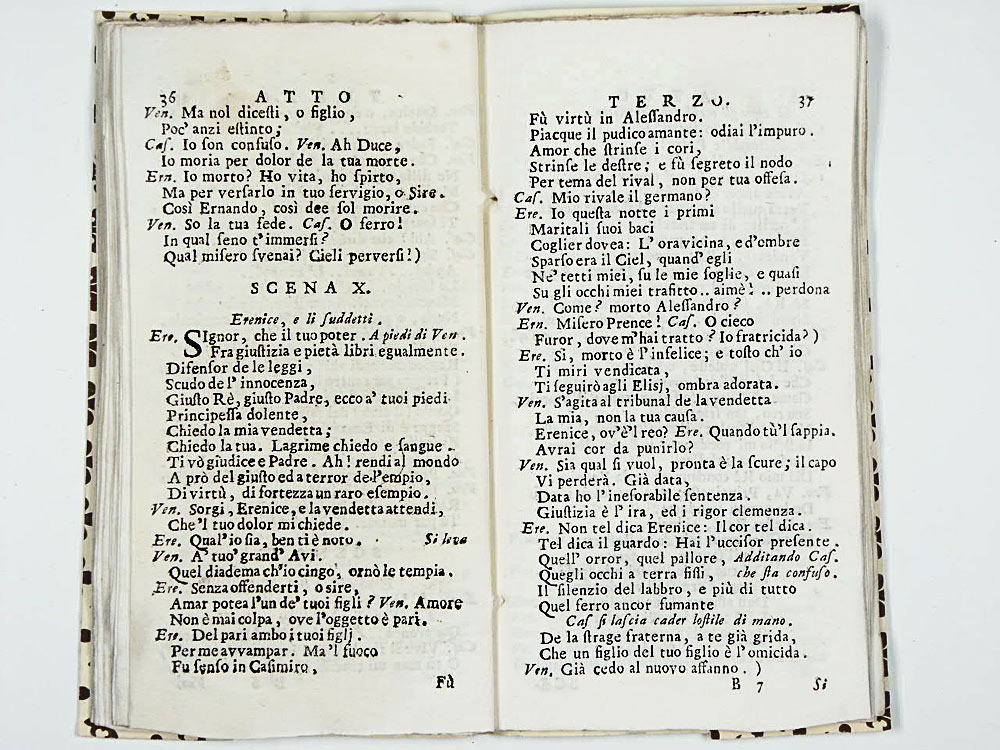 36 ATTO
Ven. Ma nol dicesti, o figlio,
Poc' anzi estinto;
Cas. Io son confuso. Ven. Ah Duce,
Io moria per dolor de la tua morte.
Ern. Io morto? Ho vita, ho spirto,
Ma per versarlo in tuo servigio, o Sire.
Così Ernando, così dee sol morire.
Ven. So la tua fede. Cas. O ferro!
In qual seno t'immersi?
Qual misero svenai? Cieli perversi!)
SCENA X.
Erenice, e li suddetti.
Ere. SIgnor, che il tuo poter. A piedi di Ven.
Fra giustizia e pietà libri egualmente.
Difensor de le leggi,
Scudo de l' innocenza,
Giusto Rè, giusto Padre, ecco a' tuoi piedi
Principessa dolente,
Chiedo la mia vendetta;
Chiedo la tua. Lagrime chiedo e sangue.
Ti vò giudice e Padre. Ah! rendi al mondo
A prò del giusto ed a terror de l'empio,
Di virtù, di fortezza un raro esempio.
Ven. Sorgi, Erenice, e la vendetta attendi,
Che 'l tuo dolor mi chiede.
Ere. Qual' io sia, ben ti è noto. Si leva
Ven. A' tuo' grand' Avi.
Quel diadema ch'io cingo, ornò le tempia.
Ere. Senza offenderti, o sire,
Amar potea l'un de' tuoi figli? Ven. Amore
Non è mai colpa, ove l'oggetto è pari.
Ere. Del pari ambo i tuoi figlj
Per me avvampar. Ma 'l fuoco
Fu senso in Casimiro,
Fù
TERZO. 37
Fù virtù in Alessandro.
Piacque il pudico amante: odiai l'impuro.
Amor che strinse i cori,
Strinse le destre; e fù segreto il nodo
Per tema del rival, non per tua offesa.
Cas. Mio rivale il germano?
Ere. Io questa notte i primi
Maritali suoi baci
Coglier dovea: L' ora vicina, e d'ombre
Sparso era il Ciel, quand' egli
Ne' tetti miei, su le mie soglie, e quasi
Su gli occhi miei trafitto.. aimè! .. perdona
Ven. Come? morto Alessandro?
Ern. Misero Prence! Cas. O cieco
Furor, dove m'hai tratto? Io fratricida?)
Ere. Sì, morto è l'infelice; e tosto ch' io
Ti miri vendicata,
Ti seguirò agli Elisj, ombra adorata.
Ven. S'agita al tribunal de la vendetta
La mia, non la tua causa.
Erenice, ov'è'l reo? Ere. Quando tù'l sappia.
Avrai cor da punirlo?
Ven. Sia qual si vuol, pronta è la scure; il capo
Vi perderà. Già data,
Data ho l'inesorabile sentenza.
Giustizia è l' ira, ed i rigor clemenza.
Ere. Non tel dica Erenice: Il cor tel dica.
Tel dica il guardo: Hai l'uccisor presente.
Quell' orror, quel pallore, Additando Cas.
Quegli occhi a terra fissi, che sta confuso.
Il silenzio del labbro, e più di tutto
Quel ferro ancor fumante
Cas si lascia cader lo stile di mano.
De la strage fraterna, a te già grida,
Che un figlio del tuo figlio è l'omicida.
Ven. Già cedo al nuovo affanno. )
B 7 Si